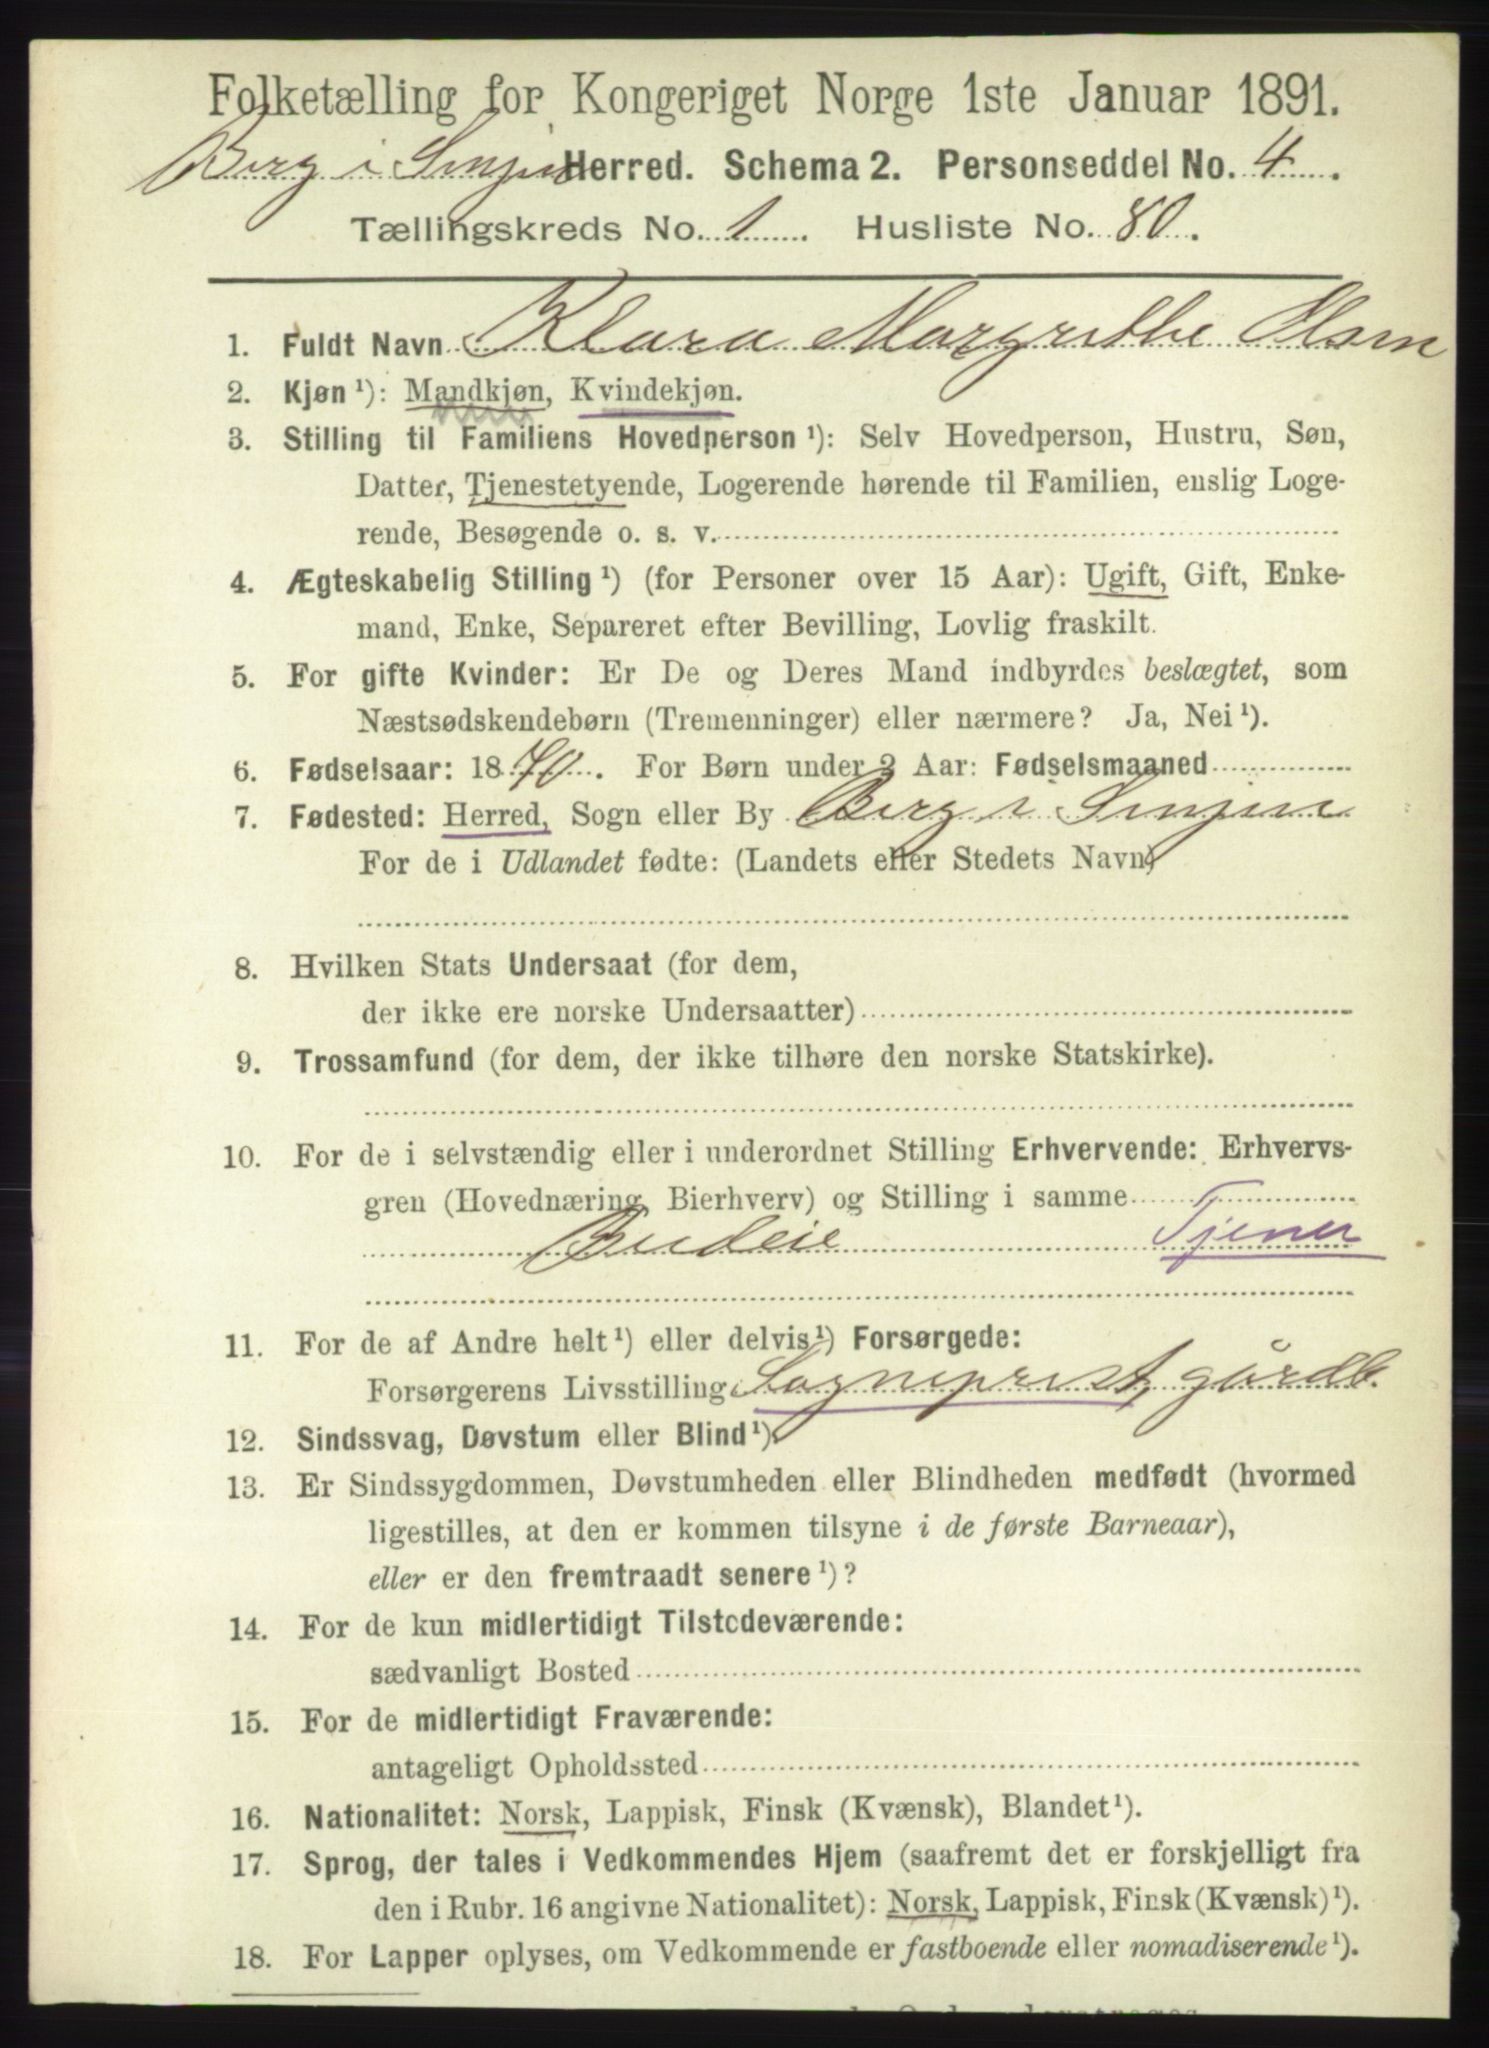 Folketælling for Kongeriget Norge 1ste Januar 1891.
Berg i Senjen Herred. Schema 2. Personseddel No. 4.
Tællingskreds No. 1. Husliste No. 80.
1. Fuldt Navn Klara Margrethe Olsen
2. Kjøn ¹): Mandkjøn, Kvindekjøn.
3. Stilling til Familiens Hovedperson ¹): Selv Hovedperson, Hustru, Søn,
Datter, Tjenestetyende, Logerende hørende til Familien, enslig Loge-
rende, Besøgende o. s. v.
4. Ægteskabelig Stilling ¹) (for Personer over 15 Aar): Ugift, Gift, Enke-
mand, Enke, Separeret efter Bevilling, Lovlig fraskilt.
5. For gifte Kvinder: Er De og Deres Mand indbyrdes beslægtet, som
Næstsødskendebørn (Tremenninger) eller nærmere? Ja, Nei ¹).
6. Fødselsaar: 1870. For Børn under 2 Aar: Fødselsmaaned
7. Fødested: Herred, Sogn eller By Berg i Senjen
For de i Udlandet fødte: (Landets eller Stedets Navn)
8. Hvilken Stats Undersaat (for dem,
der ikke ere norske Undersaatter)
9. Trossamfund (for dem, der ikke tilhøre den norske Statskirke).
10. For de i selvstændig eller i underordnet Stilling Erhvervende: Erhvervs-
gren (Hovednæring, Bierhverv) og Stilling i samme
Budeie Tjener
11. For de af Andre helt ¹) eller delvis ¹) Forsørgede:
Forsørgerens Livsstilling Sogneprest, gårdb.
12. Sindssvag, Døvstum eller Blind ¹).
13. Er Sindssygdommen, Døvstumheden eller Blindheden medfødt (hvormed
ligestilles, at den er kommen tilsyne i de første Barneaar),
eller er den fremtraadt senere ¹)?
14. For de kun midlertidigt Tilstedeværende:
sædvanligt Bosted
15. For de midlertidigt Fraværende:
antageligt Opholdssted
16. Nationalitet: Norsk, Lappisk, Finsk (Kvænsk), Blandet ¹).
17. Sprog, der tales i Vedkommendes Hjem (saafremt det er forskjelligt fra
den i Rubr. 16 angivne Nationalitet): Norsk, Lappisk, Finsk (Kvænsk) ¹).
18. For Lapper oplyses, om Vedkommende er fastboende eller nomadiserende ¹).